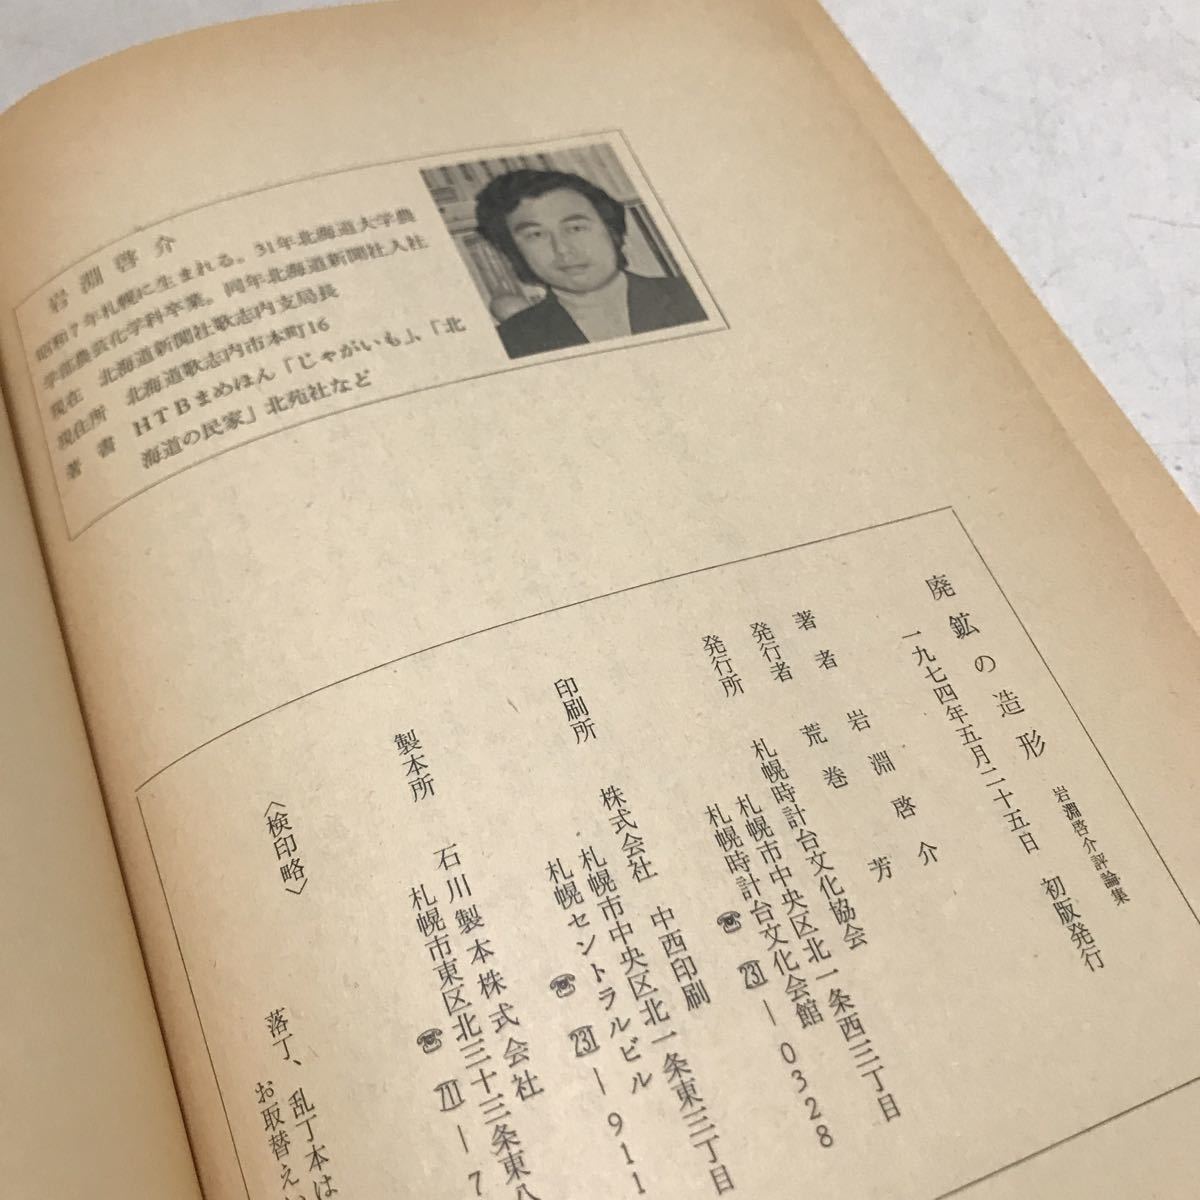 岩淵啓介
昭和7年札幌に生まれる。31年北海道大学農
学部農芸化学科卒業。同年北海道新聞社入社
現在 北海道新聞社歌志内支局長
現住所 北海道歌志内市本町16
著書 HTBまめほん「じゃがいも」、「北
海道の民家」北苑社など
廃鉱の造形 岩淵啓介評論集
一九七四年五月二十五日 初版発行
著者 岩淵啓介
発行者 荒巻芳
発行所 札幌時計台文化協会
札幌市中央区北一条西三丁目
札幌時計台文化会館
☎ 231―0328
印刷所 株式会社 中西印刷
札幌市中央区北一条東三丁目
札幌セントラルビル
☎ 231―911
製本所 石川製本株式会社
札幌市東区北三十三条東八
☎ 711―7
〈検印略〉
落丁、乱丁本は
お取替えい